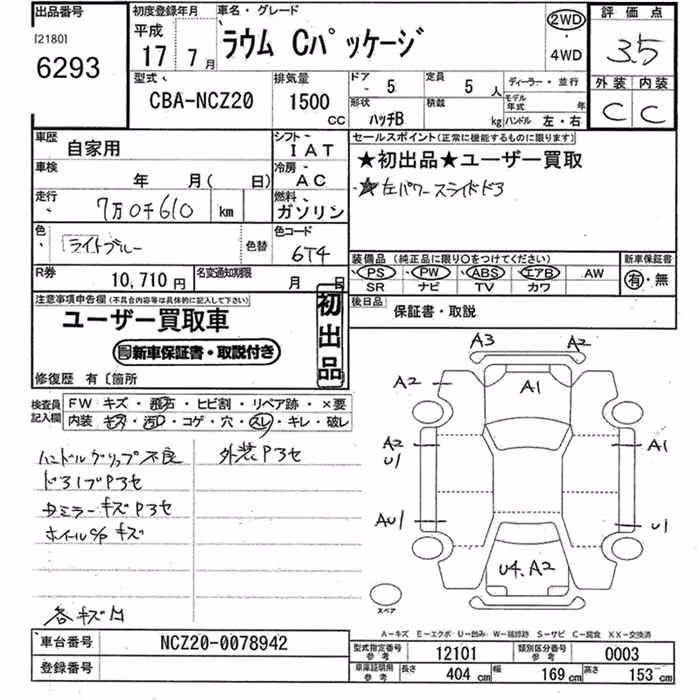 出品番号
[2180]
6293
初度登録年月
平成
17 7月
車名・グレード
ラウム Cパッケージ
2WD
・
4WD
評価点
3.5
外装 内装
C C
型式
CBA-NCZ20
排気量
1500
CC
ドア
5
定員
5 人
形状
ハッチB
積載
kg
ディーラー・並行
モデル年式 年
ハンドル 左・右
車歴
自家用
シフト
IAT
車検
年 月( 日)
冷房
AC
走行
7万0千610 km
燃料
ガソリン
色
ライトブルー
色替
色コード
6T4
R券
10,710円
名変通知期限
月 日
セールスポイント(正常に機能するものに限ります)
★初出品★ユーザー買取
★左パワースライドドア
装備品 (純正品に限り○をつけてください)
PS PW ABS エアB AW
SR ナビ TV カワ
新車保証書
有・無
後日品
保証書・取説
注意事項申告欄(不具合内容等は具体的に記入して下さい)
ユーザー買取車
新車保証書・取説付き
初出品
修復歴 有〔箇所
検査員記入欄
FW キズ・飛石・ヒビ割・リペア跡・×要
内装 キズ・汚れ・コゲ・穴・スレ・キレ・破レ
ハンドルグリップ不良
外装P3セ
ドライブP3セ
サミラーキズP3セ
ホイルc/pキズ
各キズ凹
A3 A2
A2 A1
A2 A1
U1
AU1 U1
U4.A2
スペア
A-キズ E-エクボ U-凹み W-補修跡 S-サビ C-腐食 XX-交換済
車台番号
NCZ20-0078942
登録番号
型式指定番号 参考
12101
類別区分番号 参考
0003
車庫証明用 参考
長さ 404 cm
幅 169 cm
高さ 153 cm